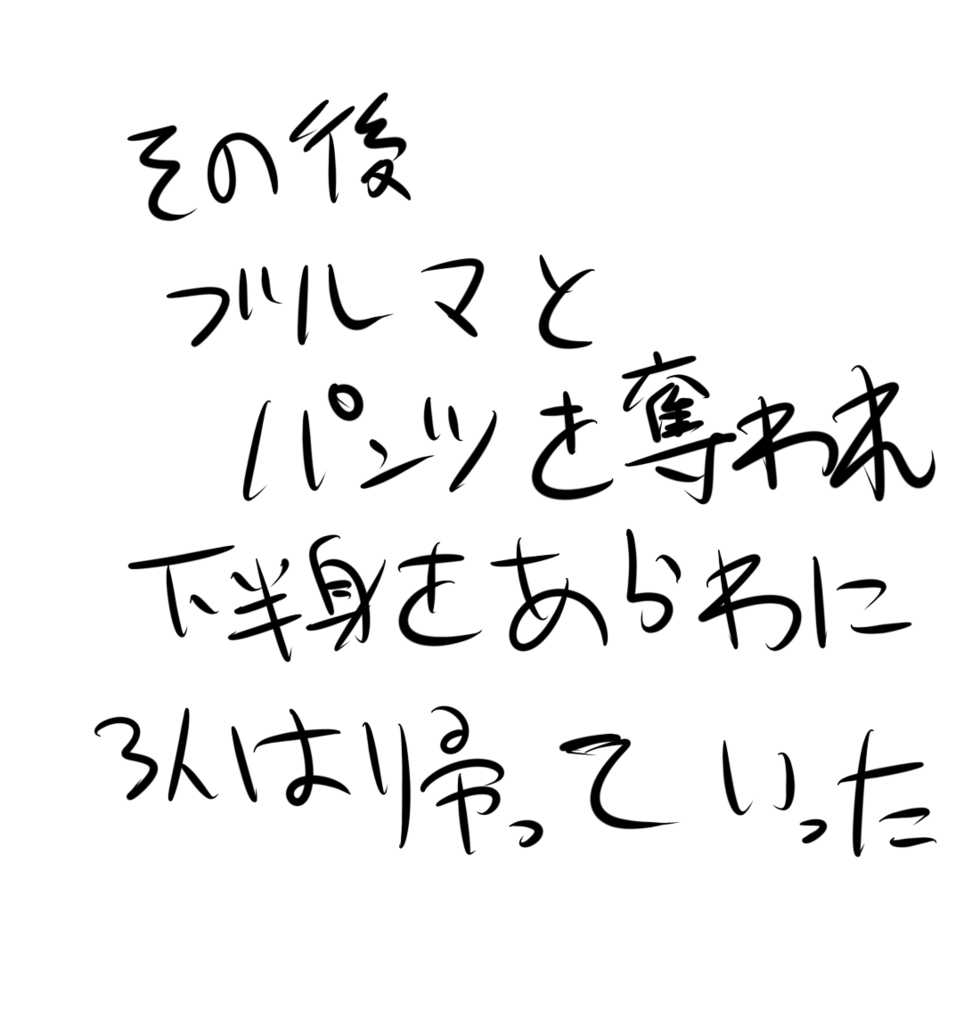 その後
ブルマと
パンツを奪われ
下半身をあらわに
3人は帰っていった